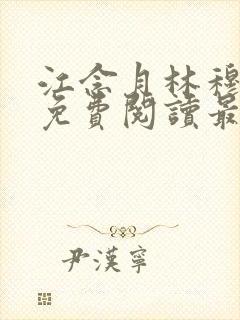 江念月林穆
免費閱讀最
尹漢寧